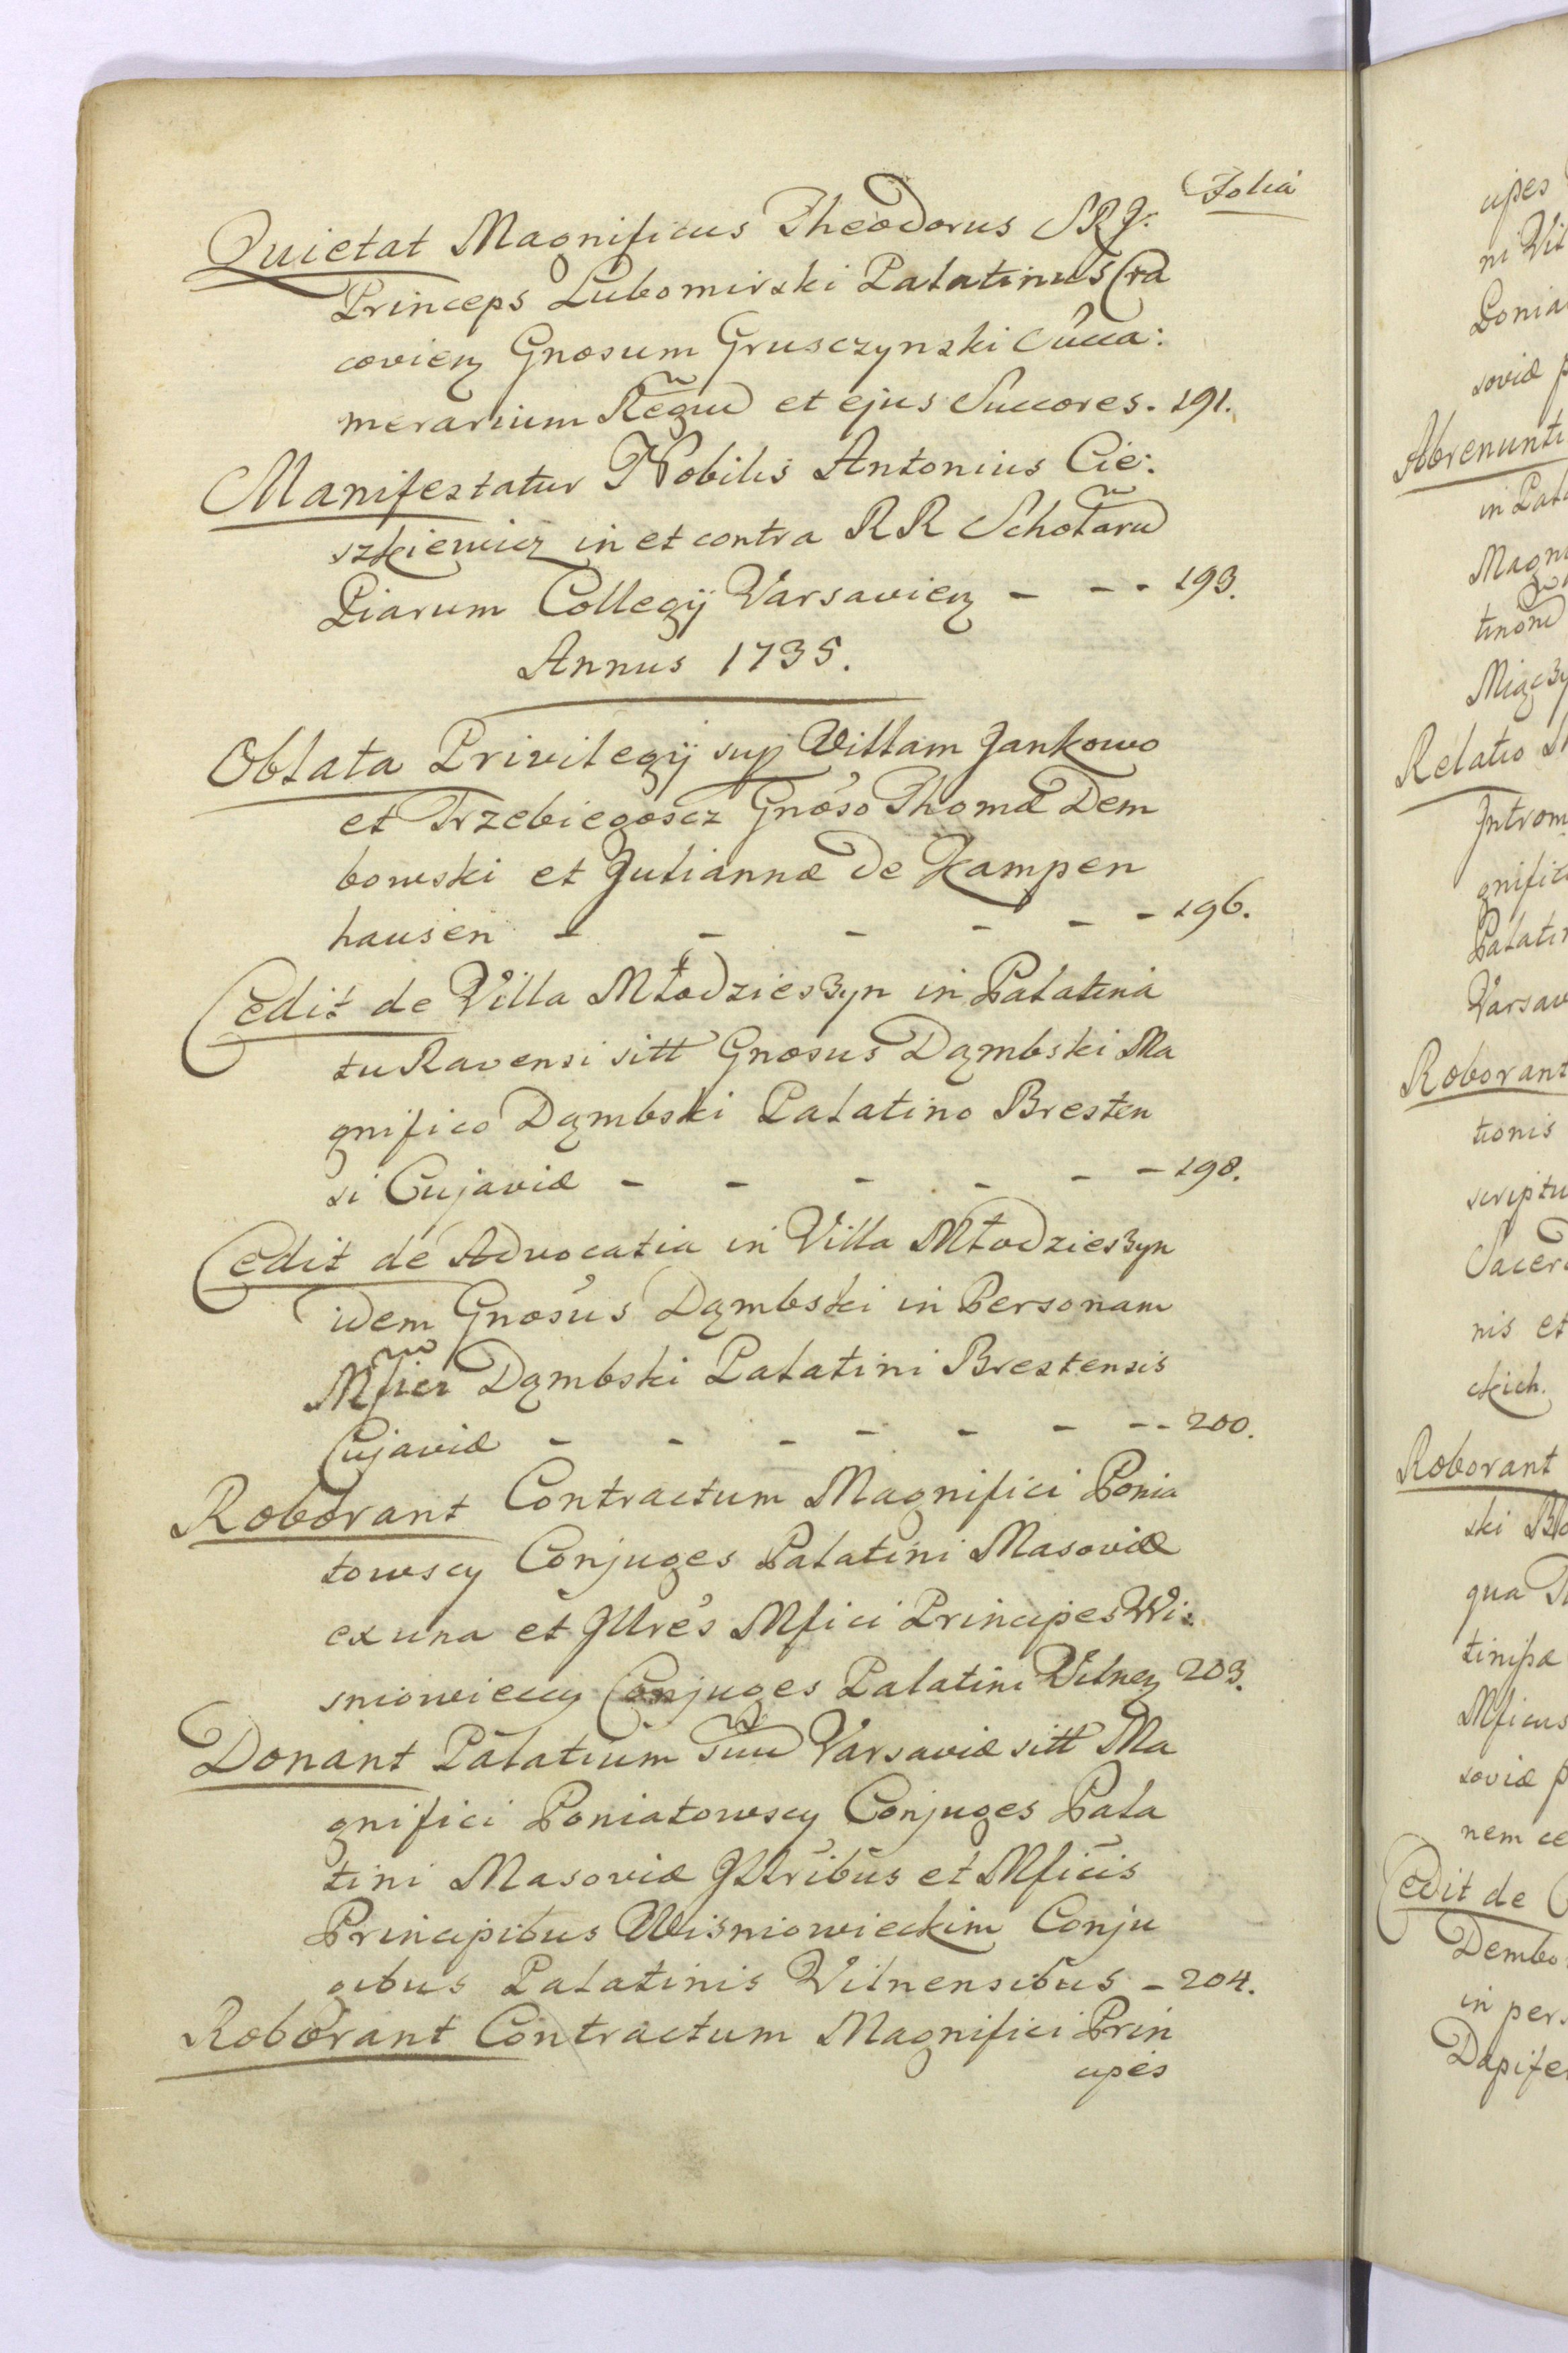 Folia
Quietat Magnificus Theodorus SRJ.
Princeps Lubomirski Palatinus Cra
covien Gnosum Grusczynski Succa:
merarium Regnu et ejus Succores. 191.
Manifestatur Nobilis Antonius Cie:
szkiewicz in et contra RR Scholaru
Piarum Collegij Varsavien - - - 193.
Annus 1735.
Oblata Privilegij sup Villam Jankowo
et Trzebiegoscz Gnoso Thomæ Dem
bowski et Juliannæ de Kampen
hausen - - - - - - 196.
Cedit de Villa Młodzieszyn in Palatina
tu Ravensi sitt Gnosus Dąmbski Ma
gnifico Dąmbski Palatino Bresten
si Cujaviæ - - - - - - 198.
Cedit de Advocatia in Villa Młodzieszyn
idem Gnosus Dąmbski in Personam
Mfici Dąmbski Palatini Brestensis
Cujaviæ - - - - - - - - 200.
Roborant Contractum Magnifici Ponia
towscy Conjuges Palatini Masoviæ
ex una et Jllres Mfici Principes Wi:
sniowieccy Conjuges Palatini Vilnen 203.
Donant Palatium suu Varsaviæ sitt Ma
gnifici Poniatowscy Conjuges Pala
tini Masoviæ Jllribus et Mficis
Principibus Wisniowieckim Conju
gibus Palatinis Vilnensibus - 204.
Roborant Contractum Magnifici Prin
cipes
cipes
ni Vil
Ponia
soviæ p
Abrenunti
in Pala
Magni
Relatio
Introm
gnific
Palatin
Varsav
Roborant
tionis
scriptu
Sacer
nis et
ckich.
Roborant
ski
qua
Mficus
soviæ p
nem ce
Cedit de
Dembo
in pers
Dapife